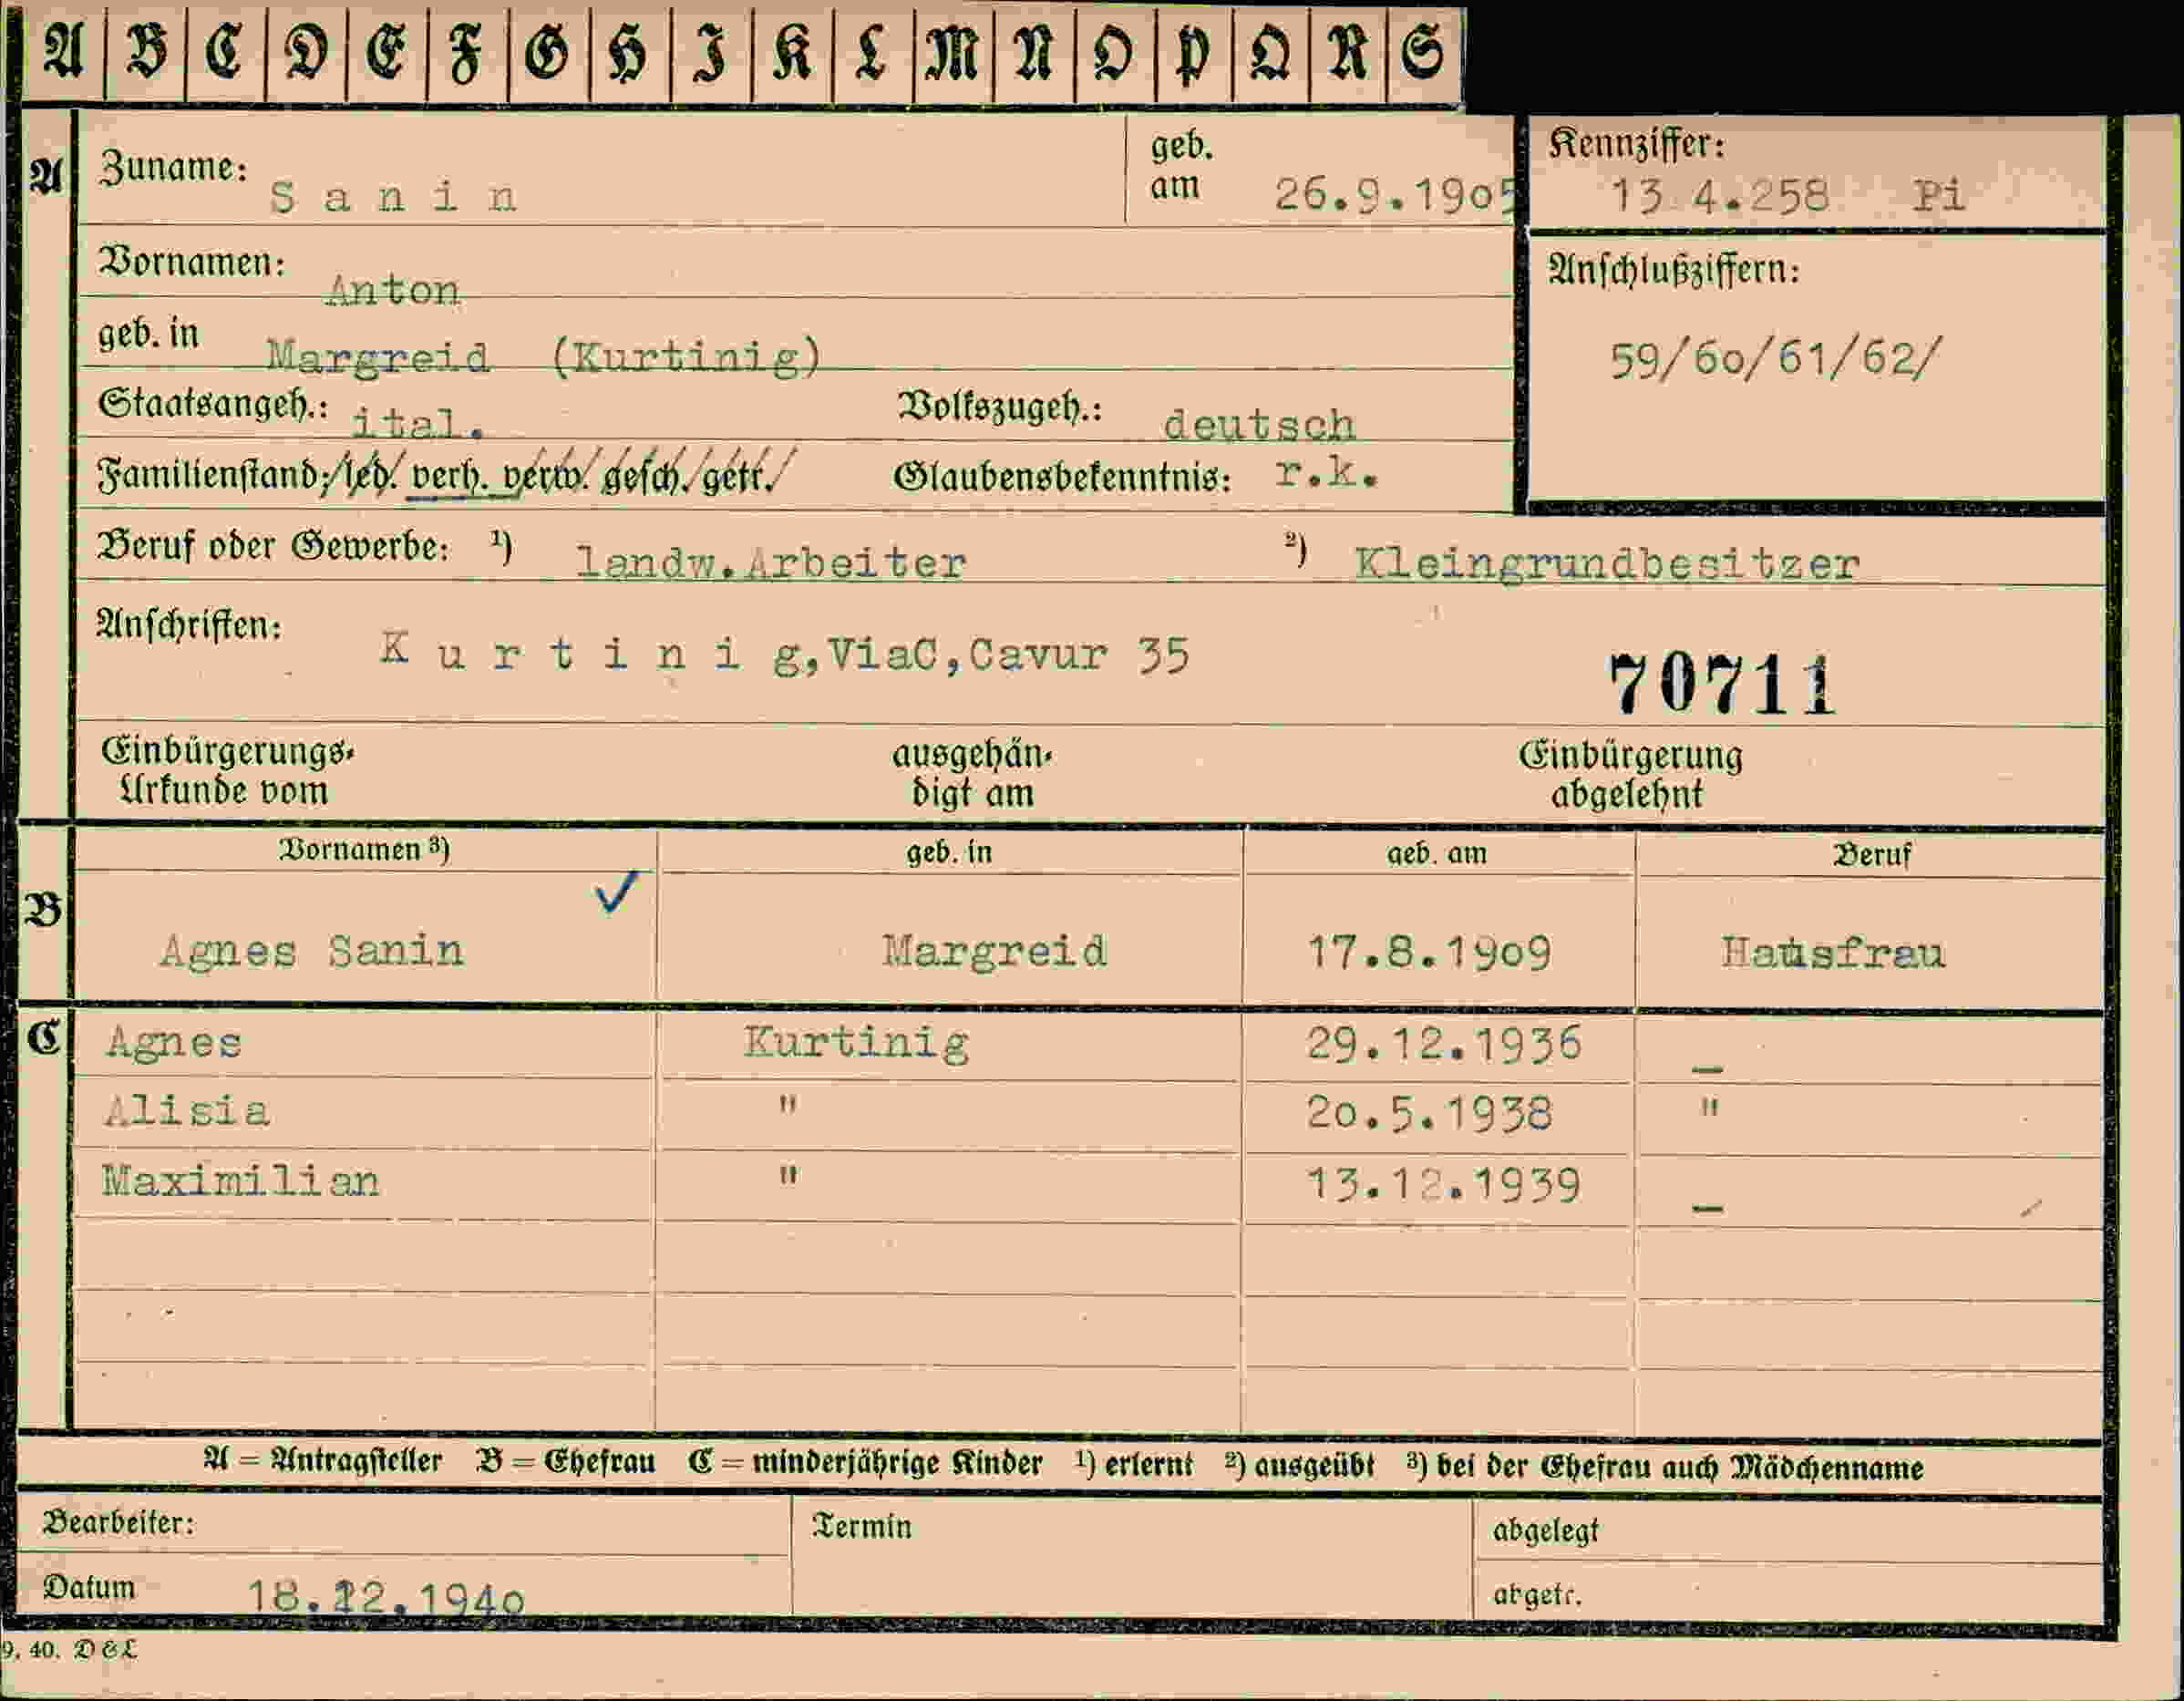 A B C D E F G H I K L M N O P Q R S
A Zuname: Sanin geb. am 26.9.1905 Kennziffer: 13 4.258 Pi
Vornamen: Anton Anschlußziffern:
geb. in Margreid (Kurtinig) 59/60/61/62/
Staatsangeh.: ital. Volkszugeh.: deutsch
Familienstand: led. verh. verw. gesch. getr. Glaubensbekenntnis: r.k.
Beruf oder Gewerbe: 1) landw.Arbeiter 2) Kleingrundbesitzer
Anschriften: Kurtinig,ViaC,Cavur 35
70711
Einbürgerungs- ausgehän- Einbürgerung
Urkunde vom digt am abgelehnt
Vornamen 3) geb. in geb. am Beruf
B ✓
Agnes Sanin Margreid 17.8.1909 Hausfrau
C Agnes Kurtinig 29.12.1936 _
Alisia " 20.5.1938 "
Maximilian " 13.12.1939 _
A = Antragsteller B = Ehefrau C = minderjährige Kinder 1) erlernt 2) ausgeübt 3) bei der Ehefrau auch Mädchenname
Bearbeiter: Termin abgelegt
Datum 18.12.1940 abgetr.
9. 40. D & L